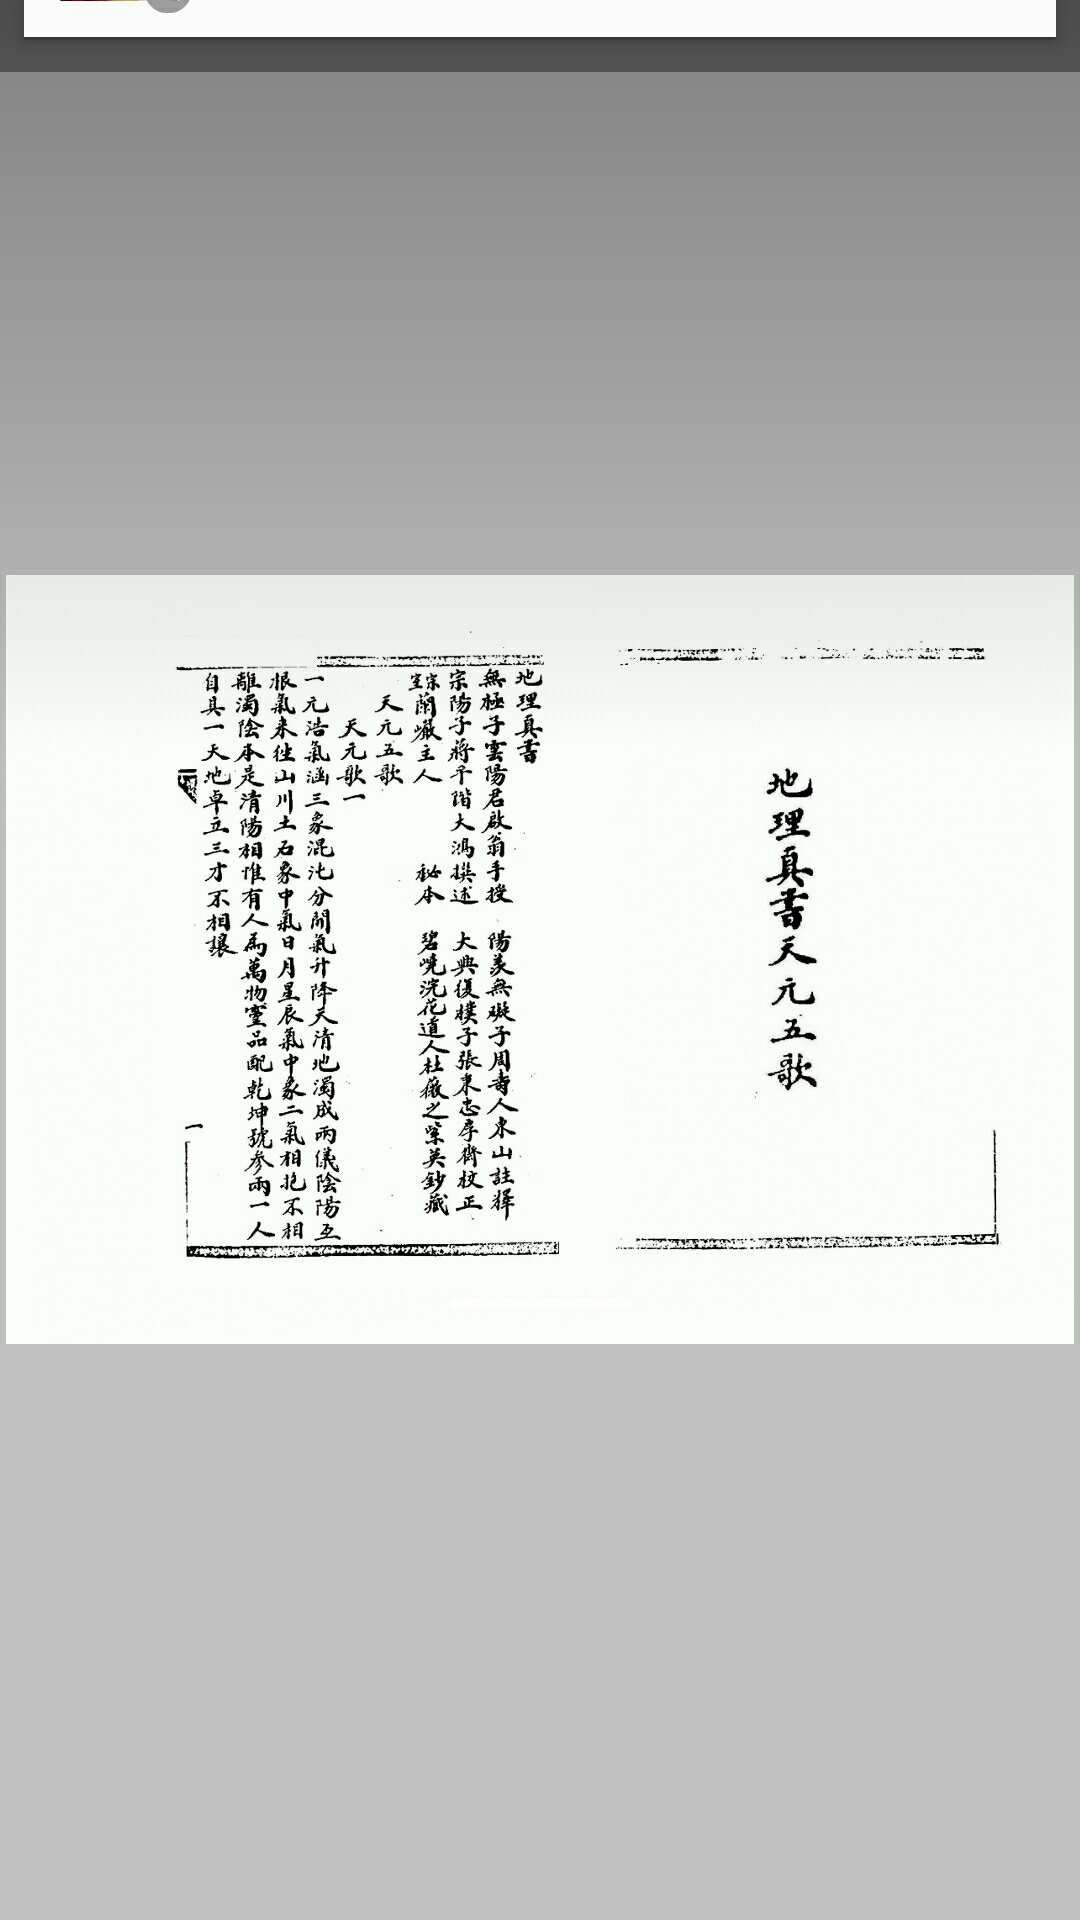 地理真書天元五歌
地理真書
無極子雲陽君啟翁手授 陽羨無礙子周壽人東山註釋
宗陽子蔣平階大鴻撰述 大興復樸子張東志序齋校正
宗室蘭巖主人 秘本 碧嶢浣花道人杜薇之紫英鈔藏
天元五歌
天元歌一
一元浩氣涵三象混沌分開氣升降天清地濁成兩儀陰陽互
根氣來往山川土石象中氣日月星辰氣中象二氣相抱不相
離濁陰本是清陽相惟有人為萬物靈品配乾坤號參兩一人
自具一天地卓立三才不相讓
一